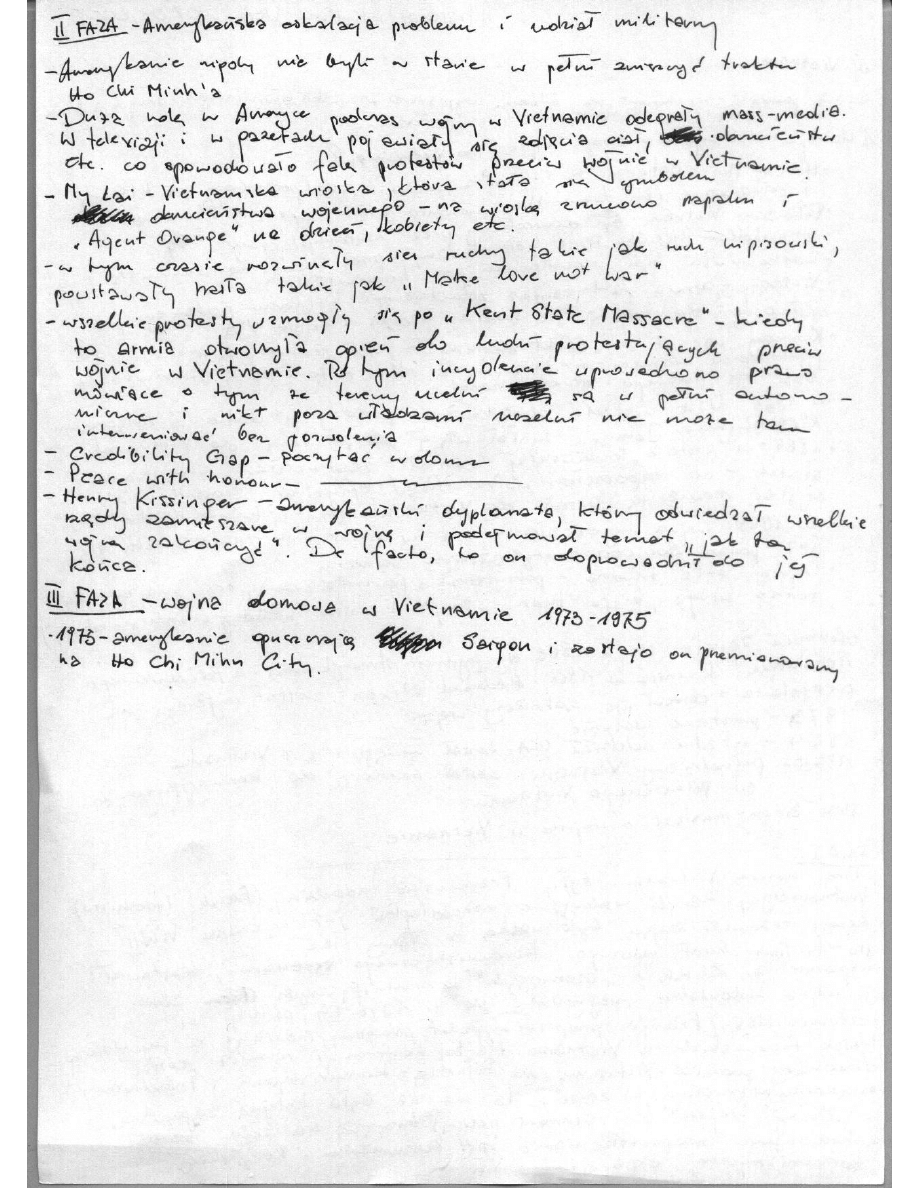 II FAZA - Amerykańska eskalacja problemu i udział militarny
- Amerykanie nigdy nie byli w stanie w pełni zniszczyć traktu
Ho Chi Minh'a
- Duża rolę w Ameryce podczas wojny w Vietnamie odegrały mass-media.
W telewizji i w gazetach pojawiały się zdjęcia ciał, okrucieństw
etc. co spowodowało falę protestów przeciw wojnie w Vietnamie.
- My Lai - Vietnamska wioska, która stała się symbolem
okrucieństwa wojennego - na wioskę zrzucono napalm i
"Agent Orange" na dzieci, kobiety etc.
- w tym czasie rozwinęły sięr ruchy takie jak ruch hipisowski,
powstawały hasła takie jak "Make love not war"
- wszelkie protesty wzmogły się po "Kent State Massacre" - kiedy
to armia otworzyła ogień do ludzi protestujących przeciw
wojnie w Vietnamie. Po tym incydencie uprowadzono prawo
mówiące o tym że tereny uczelni są w pełni autono-
miczne i nikt poza władzami uczelni nie może tam
interweniować bez pozwolenia
- Credibility Gap - poczytać w domu
- Peace with honour -
- Henry Kissinger - amerykański dyplomata, który odwiedzał wszelkie
rządy zamieszane w wojnę i podejmował temat "jak tą
wojnę zakończyć". De facto, to on doprowadził do jej
końca.
III FAZA - wojna domowa w Vietnamie 1973-1975
- 1973 - amerykanie opuszczają Saigon i zostaje on przemianowany
na Ho Chi Mihn City.